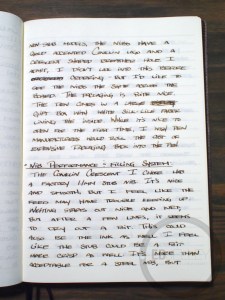 NON SHE MAKES. THE NIBS HAVE A
GOLD ACCENTED CONKLIN LOGO AND A
CRESCENT SHAPED BREATHER HOLE. I
ADMIT, I DIDN'T LOOK INTO THIS BEFORE
ORDERING BUT I'D LIKE TO
SEE THE NIBS THE SAME ACROSS THE
BOARD. THE PACKAGING IS QUITE NICE.
THE PEN COMES IN A LARGE
GIFT BOX WITH WHITE SILK-LIKE FABRIC
LINING THE INSIDE. MAKES IT'S NICE TO
OPEN FOR THE FIRST TIME. I WISH PEN
MANUFACTURERS WOULD ROLL THE COST OF
EXPENSIVE PACKAGING BACK INTO THE PEN
- NIB PERFORMANCE - FILLING SYSTEM:
THE CONKLIN CRESCENT I CHOSE HAD
A FACTORY 1.1MM STUB NIB. IT'S NICE
AND SMOOTH BUT I FEEL LIKE THE
FEED MAY HAVE TROUBLE KEEPING UP.
WRITING STARTS OUT NICE AND WET,
BUT AFTER A FEW LINES, IT SEEMS
TO DRY OUT A BIT. THIS COULD
ALSO BE THE INK AS WELL. I FEEL
LIKE THE STUB COULD BE A BIT
MORE CRISP AS WELL. IT'S MORE THAN
ACCEPTABLE FOR A STEEL NIB, BUT